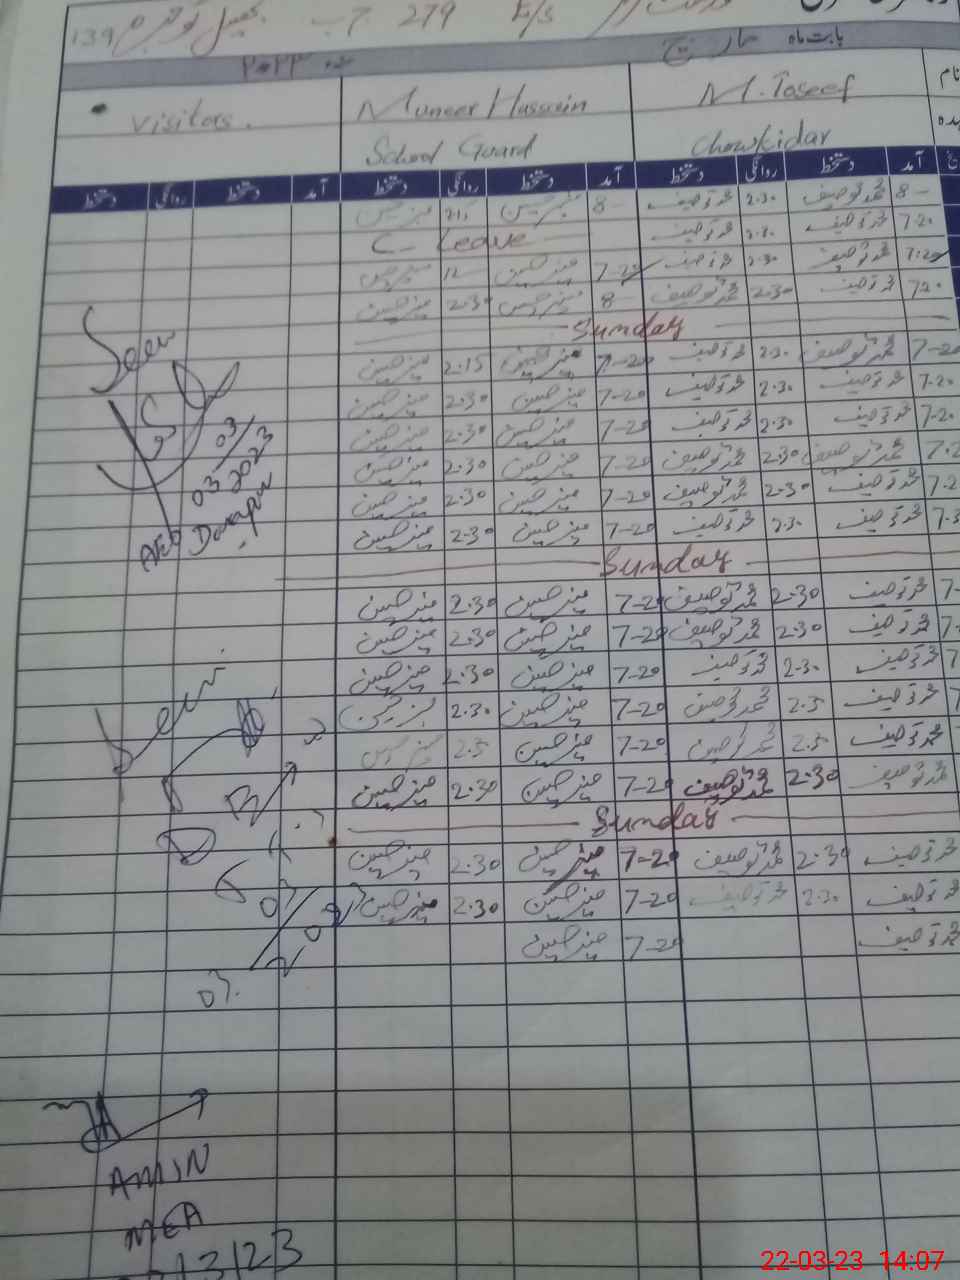 139 تحصیل گوجرہ ج ب 279 E/S
بابت ماہ مارچ ۲۰۲۳ء
Visitors. Muneer Hussain M. Toseef نام
School Guard Chowkidar عہدہ
آمد دستخط روانگی دستخط آمد دستخط روانگی دستخط آمد دستخط روانگی دستخط
8- محمد توصیف 2.30 محمد توصیف 8- منیر حسین 2:15 منیر حسین
7-20 محمد توصیف 2.30 محمد توصیف C-Leave
7:20 محمد توصیف 2.30 محمد توصیف 7-20 منیر حسین 12- منیر حسین
7-20 محمد توصیف 2:30 محمد توصیف 8- منیر حسین 2:30 منیر حسین
Sunday
7-20 محمد توصیف 2.30 محمد توصیف 7-20 منیر حسین 2:15 منیر حسین
7-20 محمد توصیف 2.30 محمد توصیف 7-20 منیر حسین 2:30 منیر حسین
7-20 محمد توصیف 2.30 محمد توصیف 7-20 منیر حسین 2:30 منیر حسین
7-2 محمد توصیف 2:30 محمد توصیف 7-20 منیر حسین 2:30 منیر حسین
7-2 محمد توصیف 2:30 محمد توصیف 7-20 منیر حسین 2:30 منیر حسین
محمد توصیف 2.30 محمد توصیف 7-20 منیر حسین 2:30 منیر حسین
Sunday
7- محمد توصیف 2:30 محمد توصیف 7-20 منیر حسین 2:30 منیر حسین
7- محمد توصیف 2:30 محمد توصیف 7-20 منیر حسین 2:30 منیر حسین
7 محمد توصیف 2.30 محمد توصیف 7-20 منیر حسین 2:30 منیر حسین
محمد توصیف 2.30 محمد توصیف 7-20 منیر حسین 2:30 منیر حسین
محمد توصیف 2.30 محمد توصیف 7-20 منیر حسین 2.30 منیر حسین
محمد توصیف 2:30 محمد توصیف 7-20 منیر حسین 2:30 منیر حسین
Sunday
محمد توصیف 2:30 محمد توصیف 7-20 منیر حسین 2:30 منیر حسین
محمد توصیف 2.30 محمد توصیف 7-20 منیر حسین 2:30 منیر حسین
محمد توصیف 7-20 منیر حسین
Seen
03/
03.2023
AEO
Seen
AMIN
MEA
/3/23
22-03-23 14:07